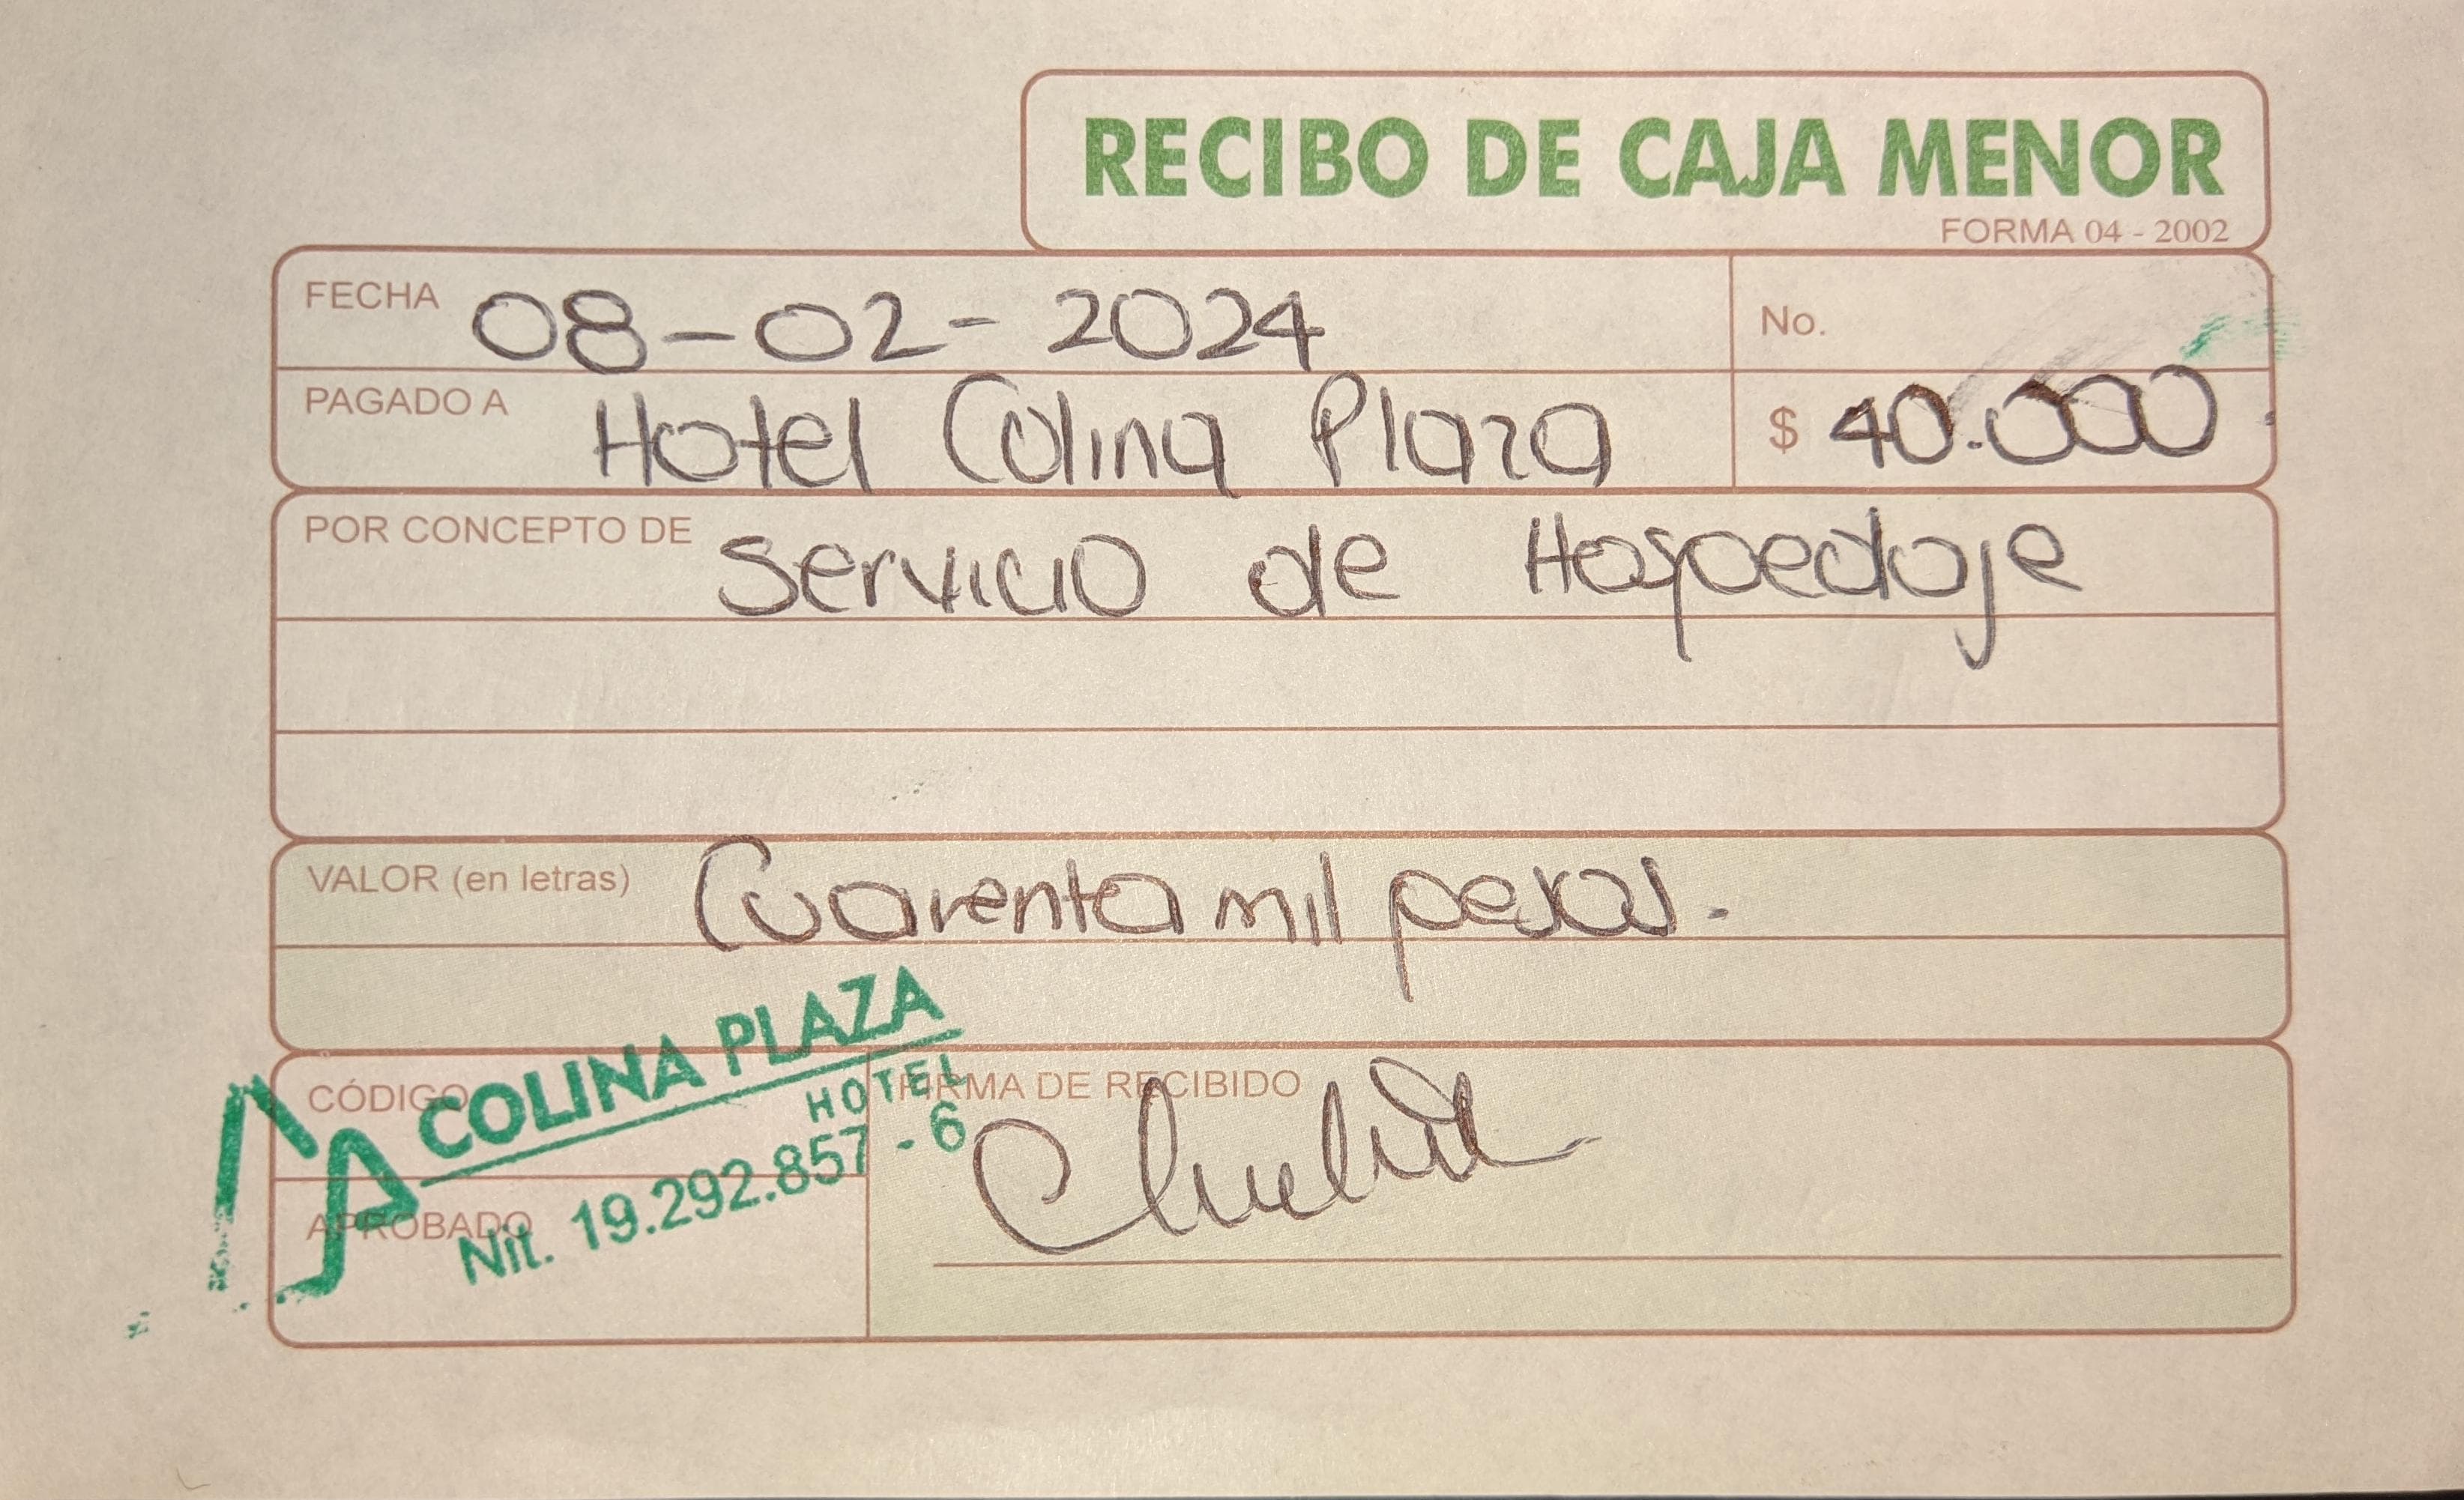 RECIBO DE CAJA MENOR
FORMA 04 - 2002
FECHA 08-02-2024
No.
PAGADO A Hotel Colina Plaza
$ 40.000
POR CONCEPTO DE Servicio de Hospedaje
VALOR (en letras) Cuarenta mil pesos.
CÓDIGO
COLINA PLAZA
HOTEL
Nit. 19.292.857-6
APROBADO
FIRMA DE RECIBIDO